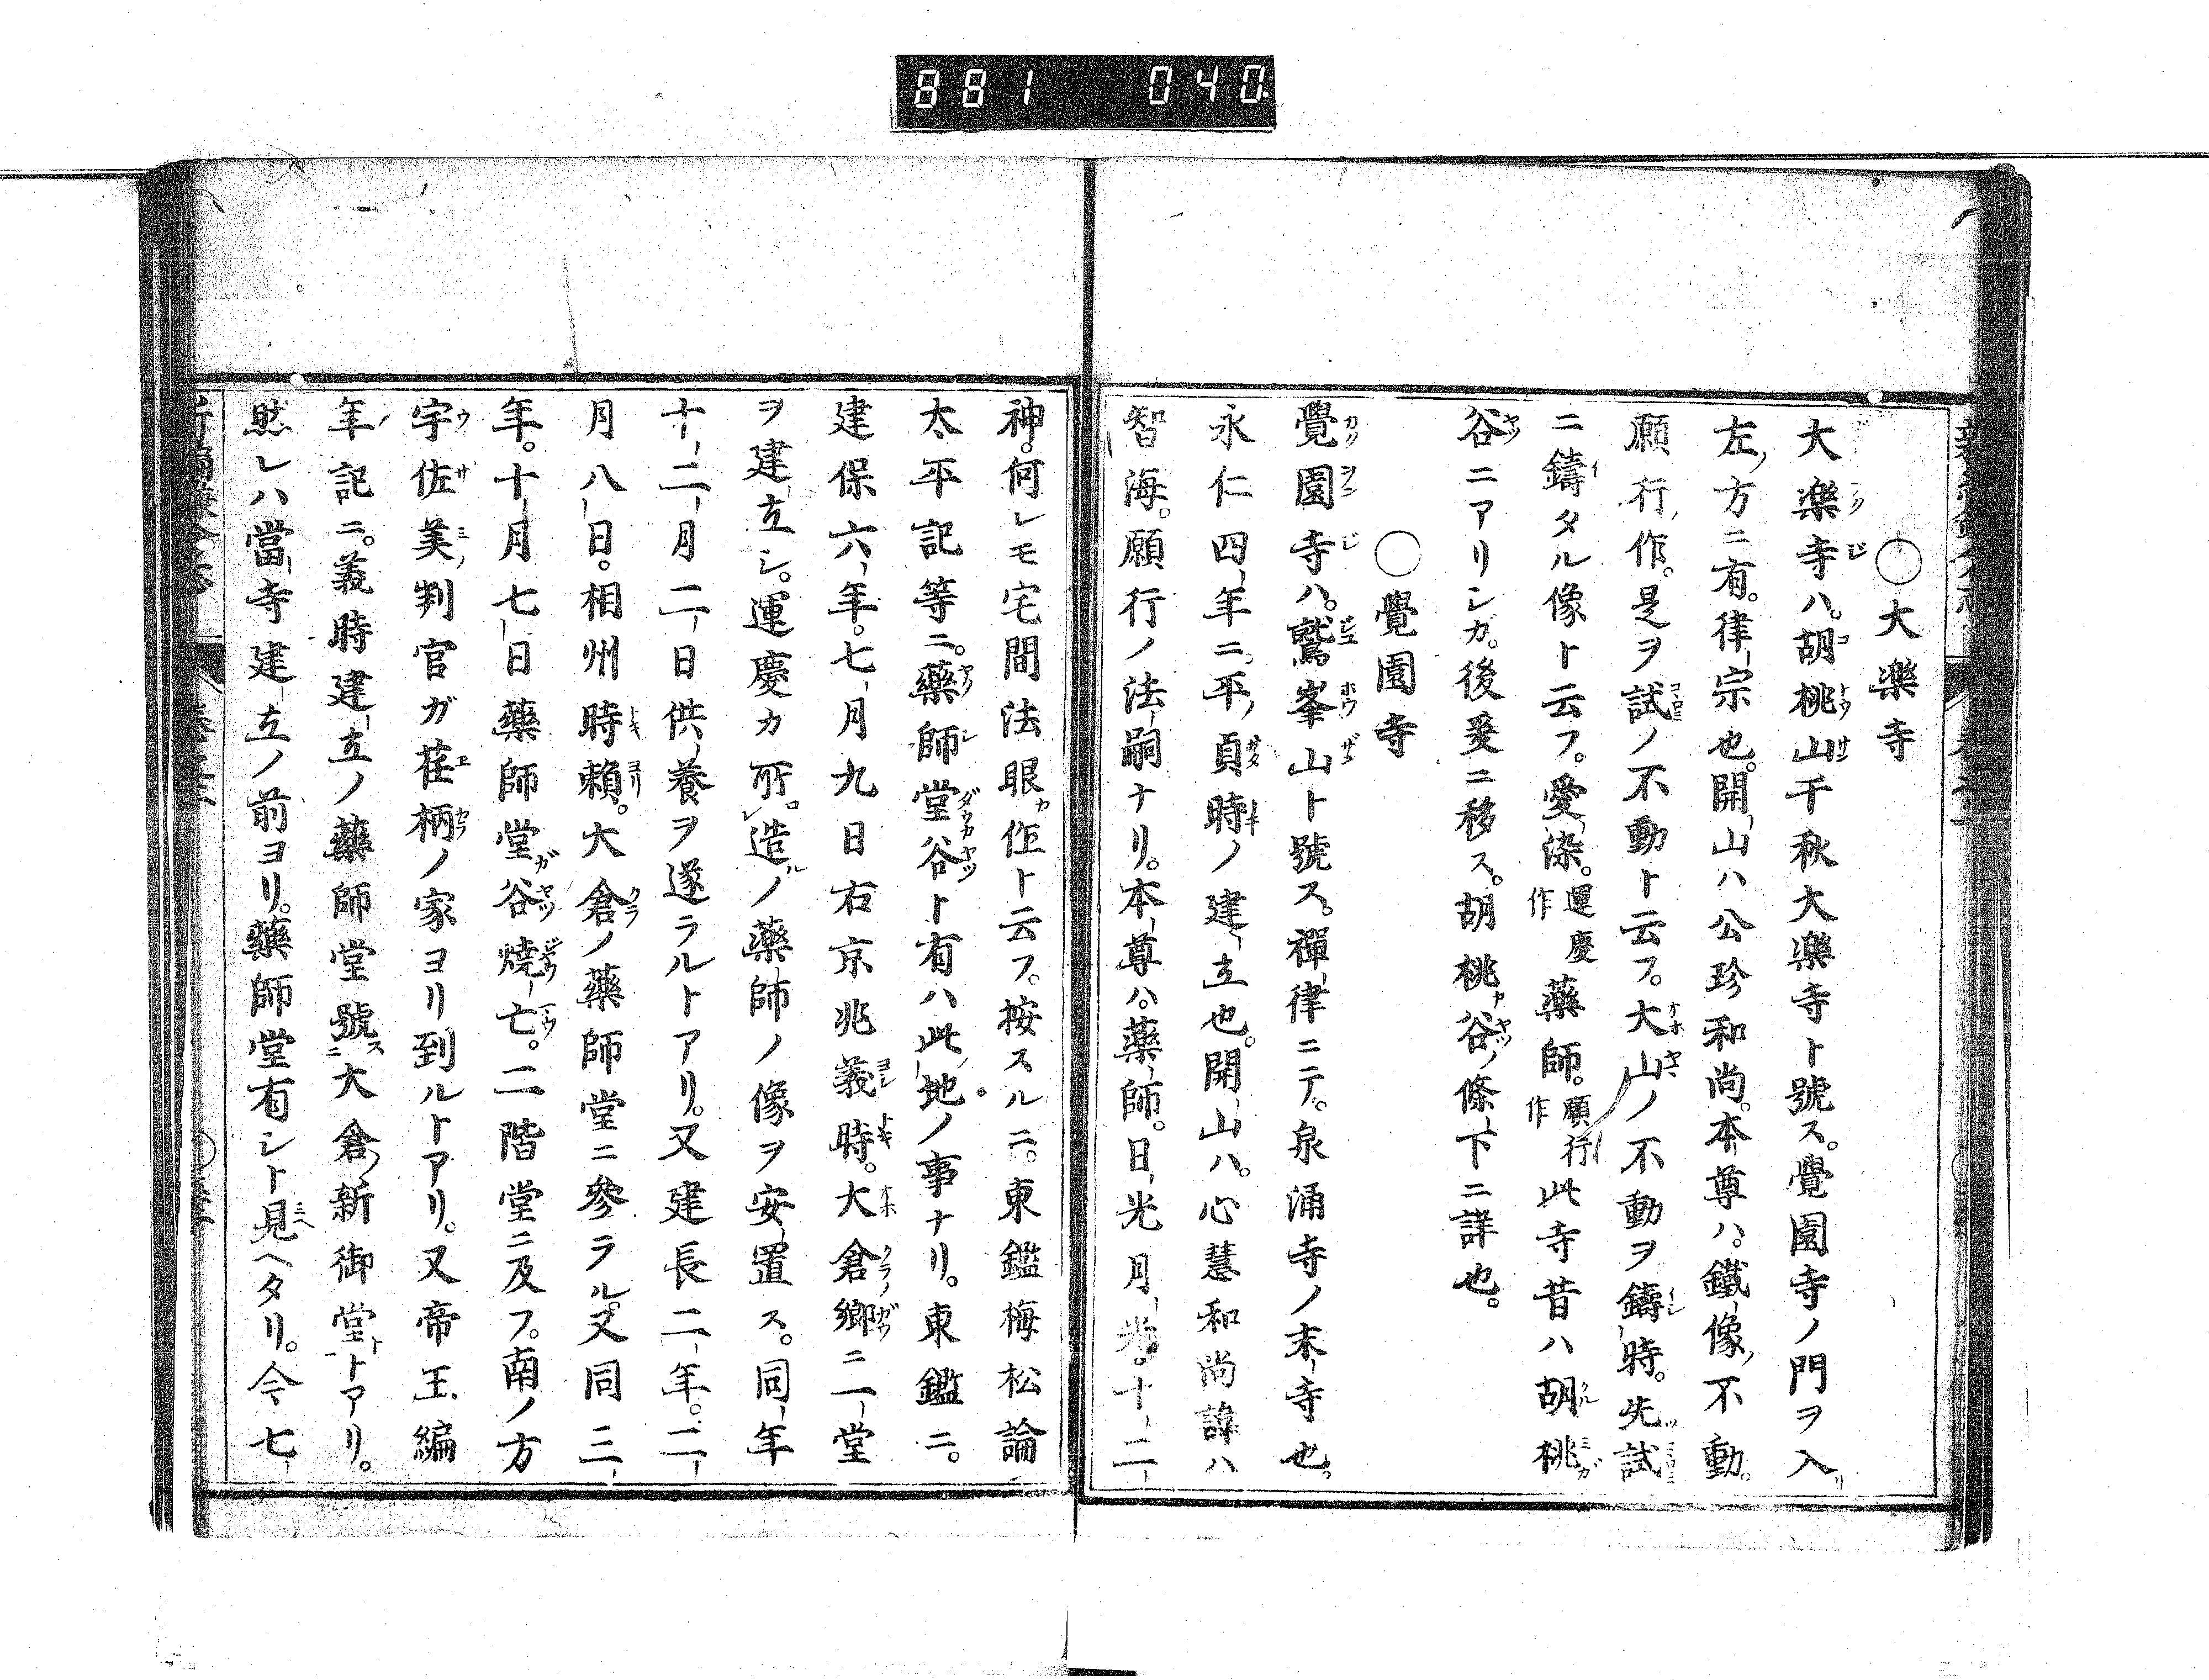 881 040
○大樂寺
大樂寺ハ。胡桃山千秋大樂寺ト號ス。覺園寺ノ門ヲ入
左ノ方ニ有。律宗也。開山ハ公珍和尚。本尊ハ。鐵像ノ不動。
願行作。是ヲ試ノ不動ト云フ。大山ノ不動ヲ鑄シ時。先試
ニ鑄タル像ト云フ。愛染。運慶作藥師。願行作此寺昔ハ胡桃
谷ニアリシカ。後爰ニ移ス。胡桃谷ノ條下ニ詳也。
○覺園寺
覺園寺ハ。鷲峯山ト號ス。禪律ニテ。泉涌寺ノ末寺也。
永仁四年ニ。平ノ貞時ノ建立也。開山ハ。心慧和尚諱ハ
智海。願行ノ法嗣ナリ。本尊ハ。藥師。日光月光。十二
神。何レモ宅間法眼作ト云フ。按スルニ。東鑑梅松論
太平記等ニ。藥師堂谷ト有ハ此地ノ事ナリ。東鑑ニ。
建保六年。七月九日右京兆義時。大倉郷ニ一堂
ヲ建立シ。運慶カ所造ノ藥師ノ像ヲ安置ス。同年
十二月二日供養ヲ遂ラルトアリ。又建長二年。二
月八日。相州時頼。大倉ノ藥師堂ニ參ラル。又同三
年。十月七日藥師堂谷燒亡。二階堂ニ及フ。南ノ方
宇佐美判官ガ荏柄ノ家ヨリ到ルトアリ。又帝王編
年記ニ。義時建立ノ藥師堂號大倉新御堂トアリ。
然レハ當寺建立ノ前ヨリ。藥師堂有シト見ヘタリ。今七